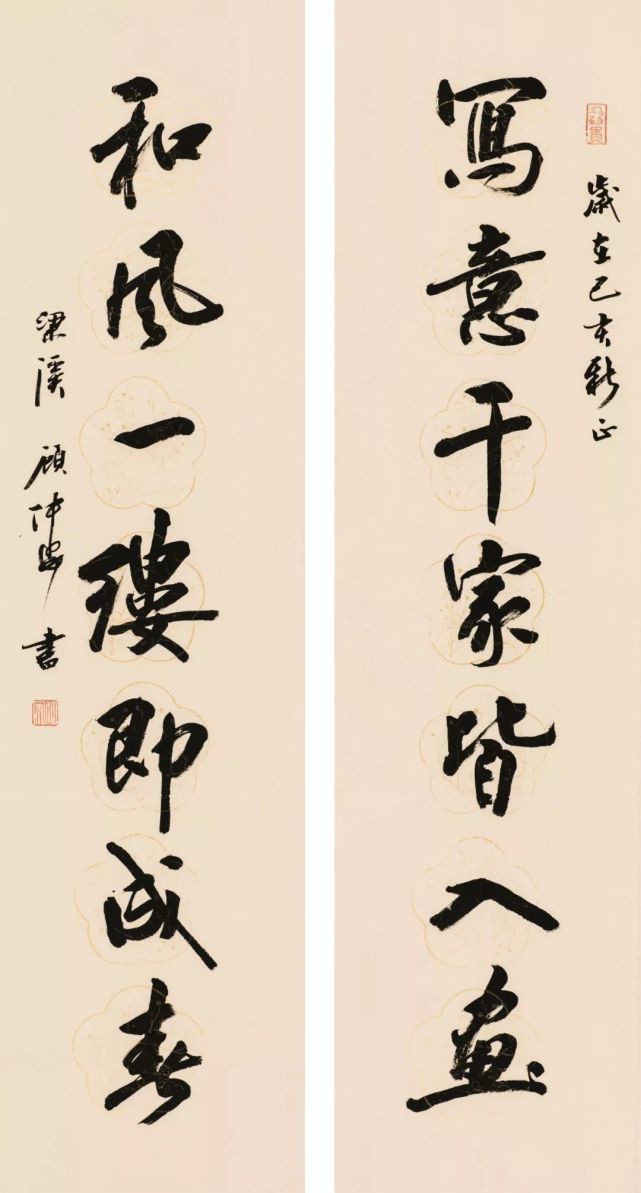 歲在己亥新正
寫意千家皆入畫
和風一縷即成春
梁溪 顧仲安 書